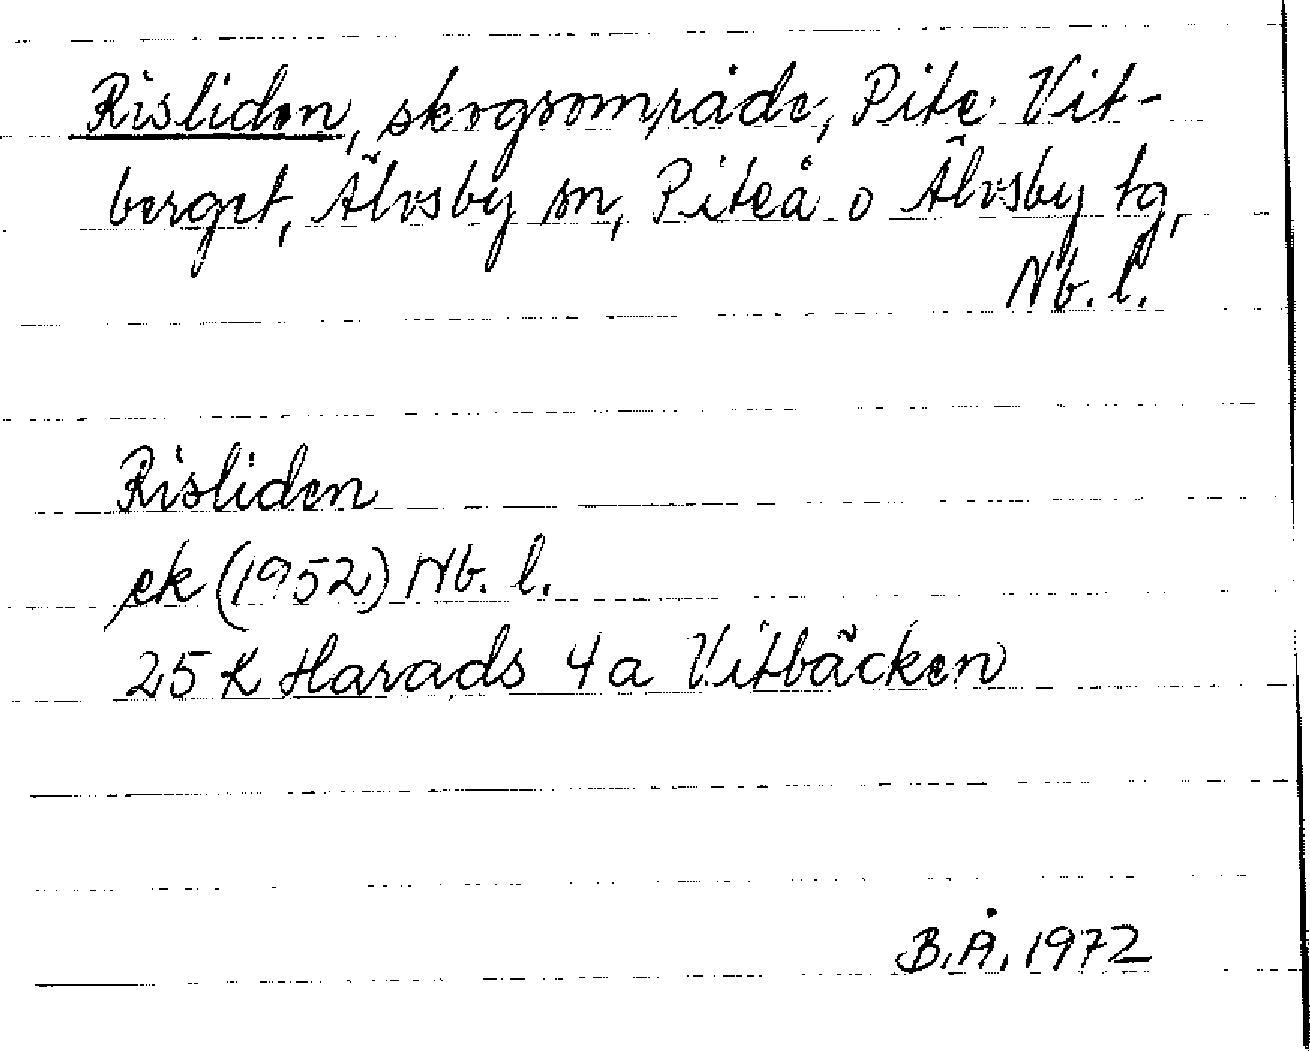 Risliden, skogsområde, Pite Vit-
berget, Älvsby sn, Piteå o Älvsby tg,
Nb. l.
Risliden
ek (1952) Nb. l.
25 K Harads 4a Vitbäcken
B.Å. 1972